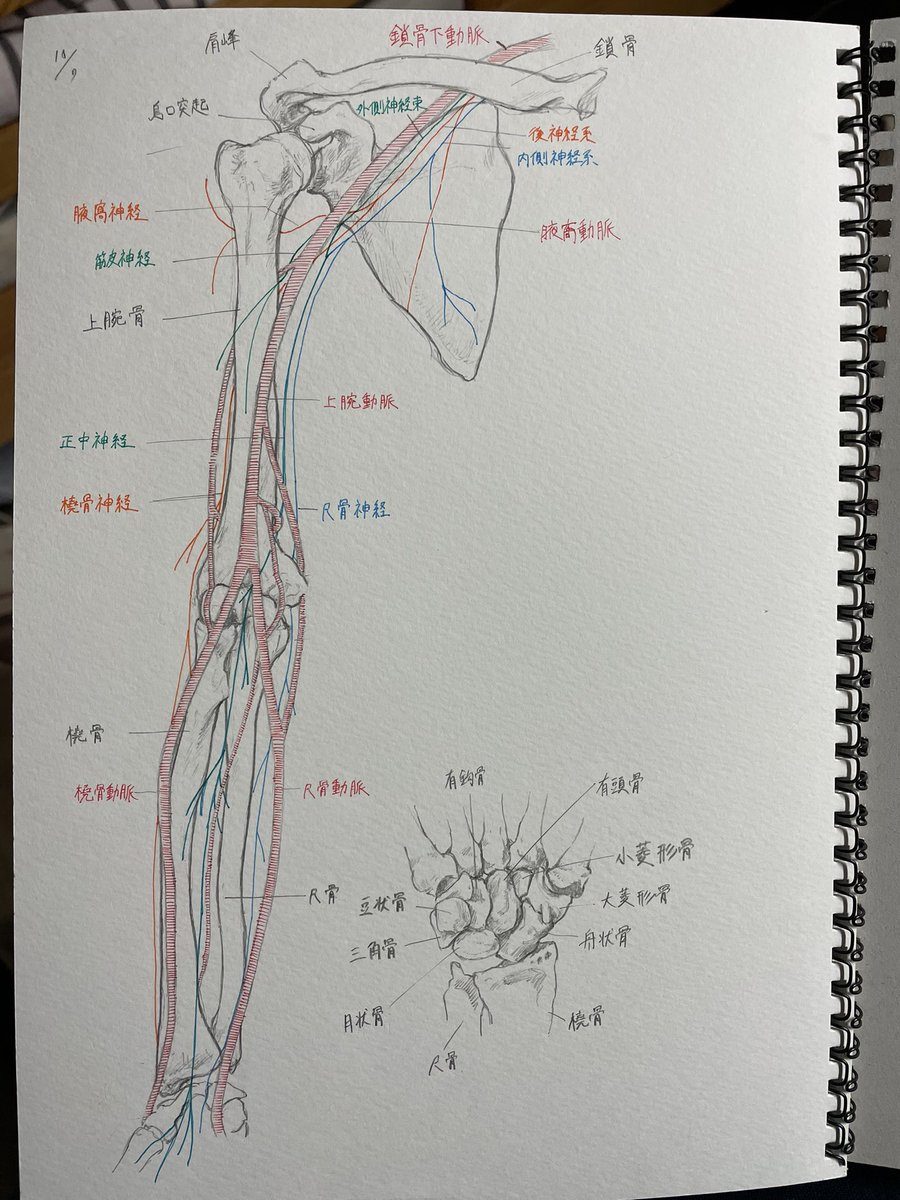 11/9
肩峰
鎖骨下動脈
鎖骨
烏口突起
外側神経束
後神経系
内側神経系
腋窩神経
腋窩動脈
筋皮神経
上腕骨
上腕動脈
正中神経
橈骨神経
尺骨神経
橈骨
橈骨動脈
尺骨動脈
有鈎骨
有頭骨
小菱形骨
尺骨
豆状骨
大菱形骨
三角骨
舟状骨
月状骨
橈骨
尺骨